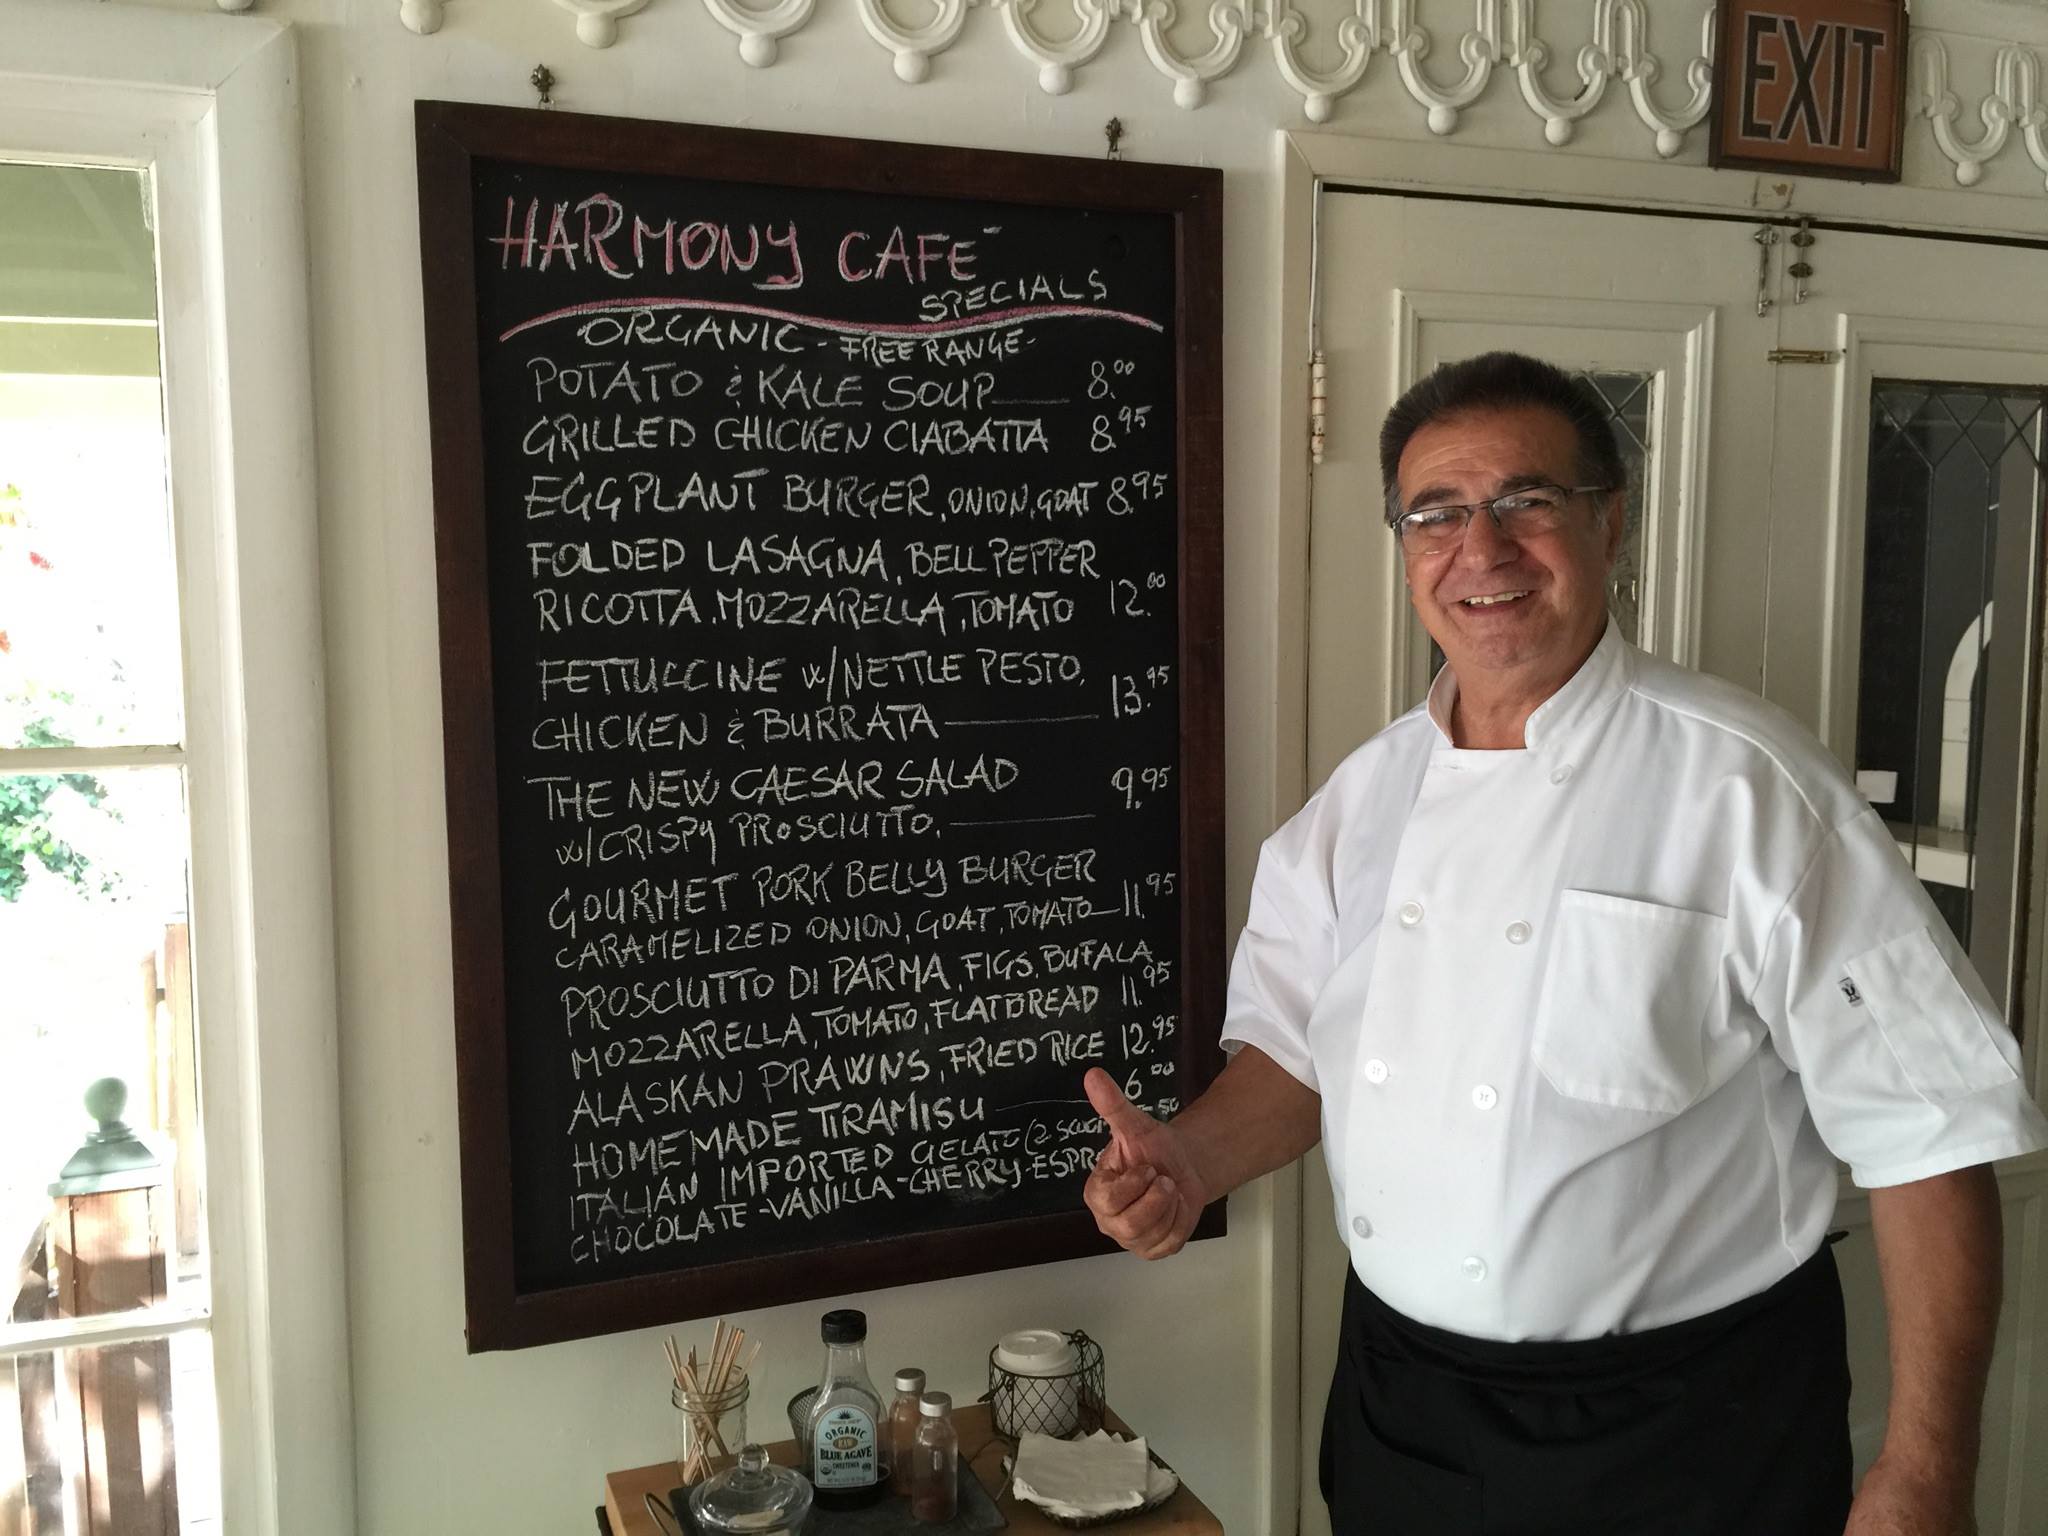 HARMONY CAFE
SPECIALS
ORGANIC - FREE RANGE -
POTATO & KALE SOUP 8.00
GRILLED CHICKEN CIABATTA 8.95
EGGPLANT BURGER, ONION, GOAT 8.95
FOLDED LASAGNA, BELL PEPPER
RICOTTA, MOZZARELLA, TOMATO 12.00
FETTUCCINE w/NETTLE PESTO,
CHICKEN & BURRATA 13.95
THE NEW CAESAR SALAD 9.95
w/CRISPY PROSCIUTTO.
GOURMET PORK BELLY BURGER
CARAMELIZED ONION, GOAT, TOMATO 11.95
PROSCIUTTO DI PARMA, FIGS, BUFALA
MOZZARELLA, TOMATO, FLATBREAD 11.95
ALASKAN PRAWNS, FRIED RICE 12.95
HOMEMADE TIRAMISU 6.00
ITALIAN IMPORTED GELATO (2 50
CHOCOLATE - VANILLA - CHERRY -
EXIT
ORGANIC
RAW
BLUE AGAVE
SWEETENER